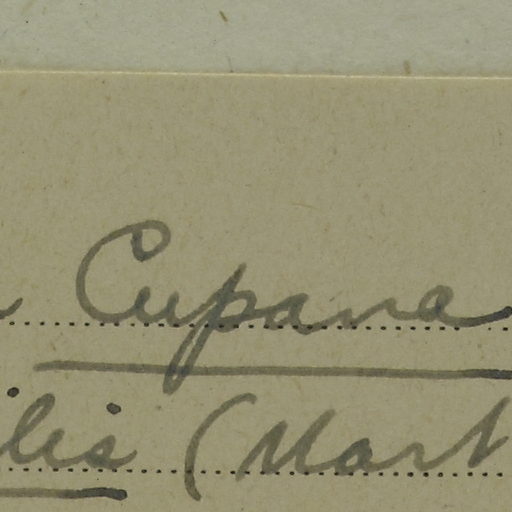 Cupana
ilis (Mart